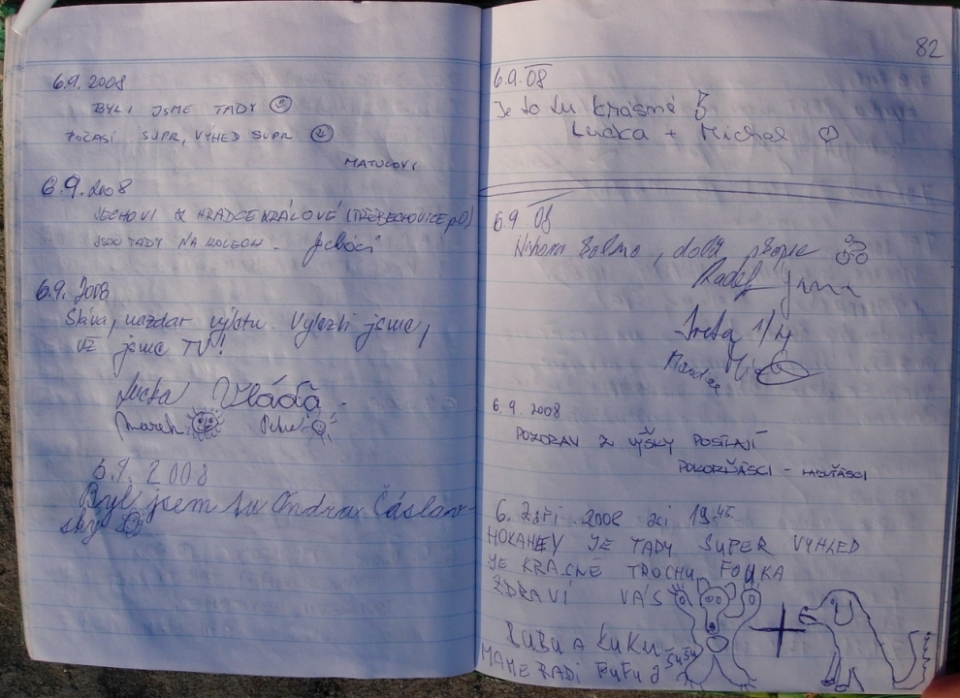 6.9.2008
BYLI JSME TADY
POČASÍ SUPR, VÝHED SUPR
MATULOVI
6.9.2008
JECHOVI Z HRADCE KRÁLOVÉ (TŘEBECHOVICE p.O)
JSOU TADY NA KOLECH.
6.9. 2008
Sláva, nazdar výletu. Vylezli jsme,
už jsme TU!
Lucka Vláďa
Marek
6.9. 2008
Byl jsem tu Ondra Čáslav-
ský
82
6.9.08
Je to tu krásné
Lucka + Michal
6.9 08
Nahoru, dolů
Radek
6.9.2008
POZDRAV Z VÝŠKY POSÍLAJÍ
6. ZÁŘÍ 2008 19.45
HOKAHEY JE TADY SUPER VÝHLED
JE KRÁSNĚ TROCHU FOUKA
ZDRAVÍ VÁS
BUBU A KUKU
MÁME RÁDI FUFU A ŠUŠU